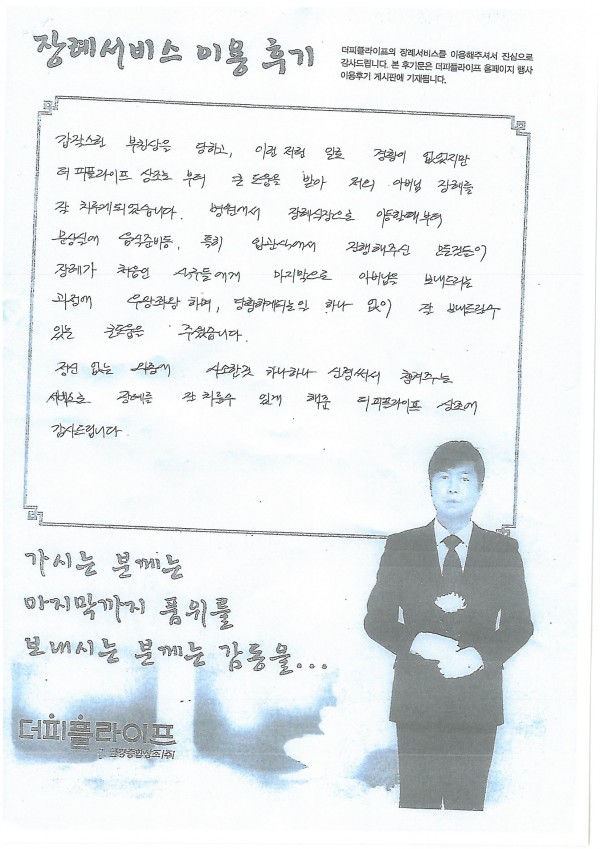 장례서비스 이용 후기
더피플라이프의 장례서비스를 이용해주셔서 진심으로
감사드립니다. 본 후기문은 더피플라이프 홈페이지 행사
이용후기 게시판에 기재됩니다.
갑작스런 부친상을 당하고, 이런저런 일로 경황이 없었지만
더피플라이프 상조로 부터 큰 도움을 받아 저의 아버님 장례를
잘 치루게되었습니다. 병원에서 장례식장으로 이동할때부터
문상식에 음식준비등, 특히 입관식에서 진행해주신 모든것들이
장례가 처음인 식구들에게 마지막으로 아버님을 보내드리는
과정에 우왕좌왕 하며, 당황하게되는일 하나 없이 잘 보내드릴수
있는 큰도움을 주셨습니다.
정신 없는 와중에 사소한것 하나하나 신경써서 챙겨주는
서비스로 장례를 잘 치룰수 있게 해준 더피플라이프 상조에
감사드립니다
가시는 분께는
마지막까지 품위를
보내시는 분께는 감동을...
더피플라이프